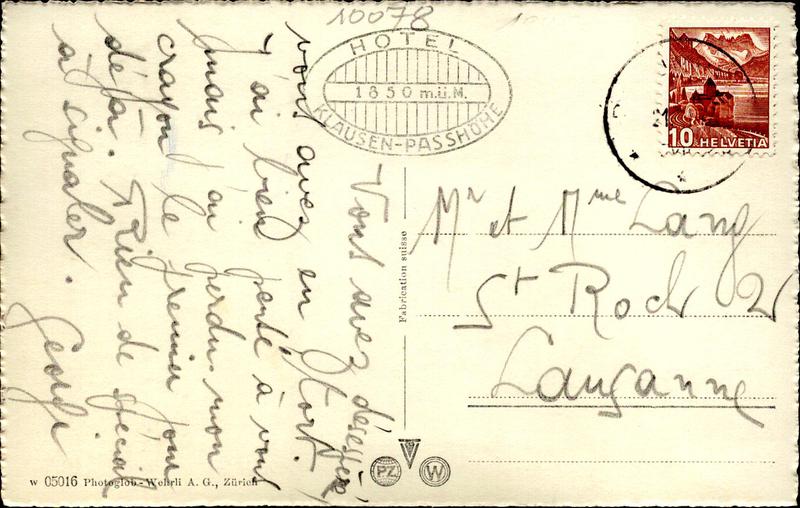 10078
HOTEL
1850 m.ü.M.
KLAUSEN-PASSHÖHE
10 HELVETIA
Vous avez désespéré
vous avez eu tort.
J'ai bien pensé à vous
mais j'ai perdu mon
crayon le premier jour
déjà. Rien de spécial
à signaler.
George
Mr et Mme Lang
St Roch 2
Lausanne
Fabrication suisse
PZ W
W 05016 Photoglob-Wehrli A. G., Zürich